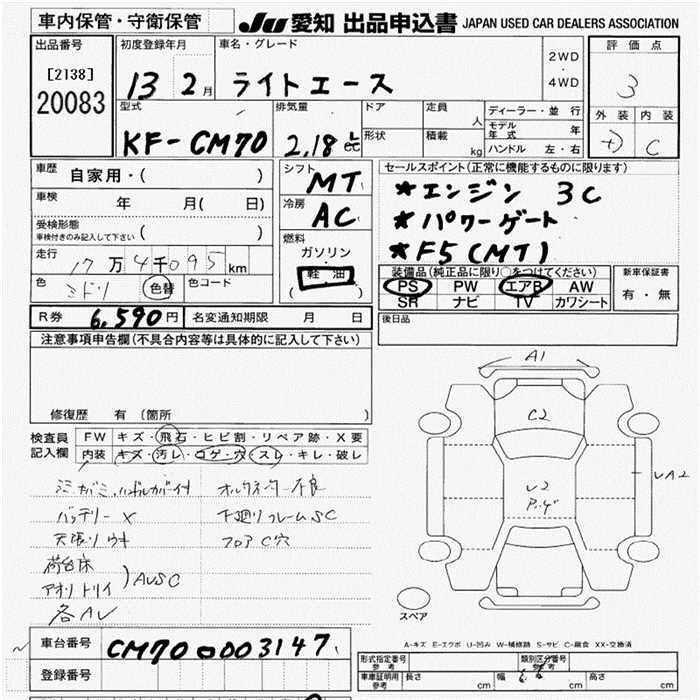 車内保管・守衛保管
JU 愛知 出品申込書 JAPAN USED CAR DEALERS ASSOCIATION
出品番号
[2138]
20083
初度登録年月
13 2月
車名・グレード
ライトエース
2WD
・
4WD
評価点
3
外装 内装
C
型式
KF-CM70
排気量
2.18 ℓ cc
ドア
形状
定員 人
積載 kg
ディーラー・並行
モデル年式 年
ハンドル 左・右
車歴 自家用・( )
車検 年 月( 日)
受検形態
車検付きのみ記入して下さい ( )
走行 17万4千095km
色 ミドリ 色替 色コード
シフト MT
冷房 AC
燃料
ガソリン
・
軽油
( )
セールスポイント(正常に機能するものに限ります)
★エンジン 3C
★パワーゲート
★F5(MT)
装備品(純正品に限り○をつけてください)
PS PW エアB AW
SR ナビ TV カワシート
新車保証書
有・無
R券 6,590円 名変通知期限 月 日
後日品
注意事項申告欄(不具合内容等は具体的に記入して下さい)
修復歴 有 (箇所 )
検査員記入欄
FW キズ・飛石・ヒビ割・リペア跡・X要
内装 キズ・汚レ・コゲ・穴・スレ・キレ・破レ
オルタネーター不良
バッテリーX 下廻リフレームSC
天張リウキ フロアC穴
荷台床
アオリトリイ )AUSC
各AU
A1
C2
U2
UA2
スペア
A-キズ E-エクボ U-凹み W-補修跡 S-サビ C-腐食 XX-交換済
車台番号 CM70-0003147
登録番号
形式指定番号 参考
類別区分番号 参考
車庫証明用 参考 長さ cm 幅 cm 高さ cm